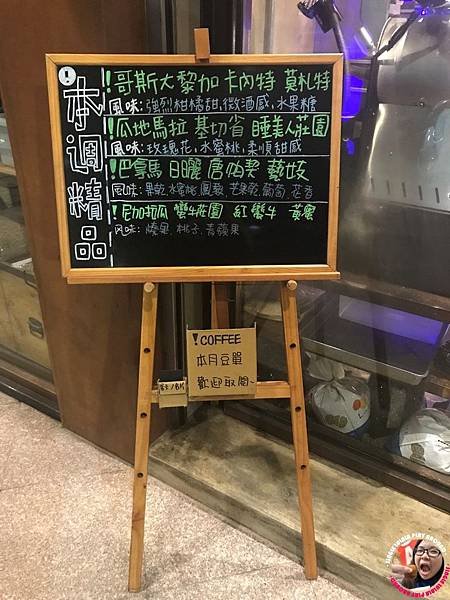 本週精品
！哥斯大黎加 卡內特 莫札特
風味:強烈柑橘甜,微酒感,水果糖
！瓜地馬拉 基切省 睡美人莊園
風味:玫瑰花,水蜜桃,柔順甜感
！巴拿馬 日曬 唐帕契 藝妓
風味:果乾,水蜜桃,鳳梨,芒果乾,葡萄,花香
！尼加拉瓜 蠻牛莊園 紅蠻牛 黃蜜
風味:漿果,桃子,青蘋果
！COFFEE
本月豆單
歡迎取閱~